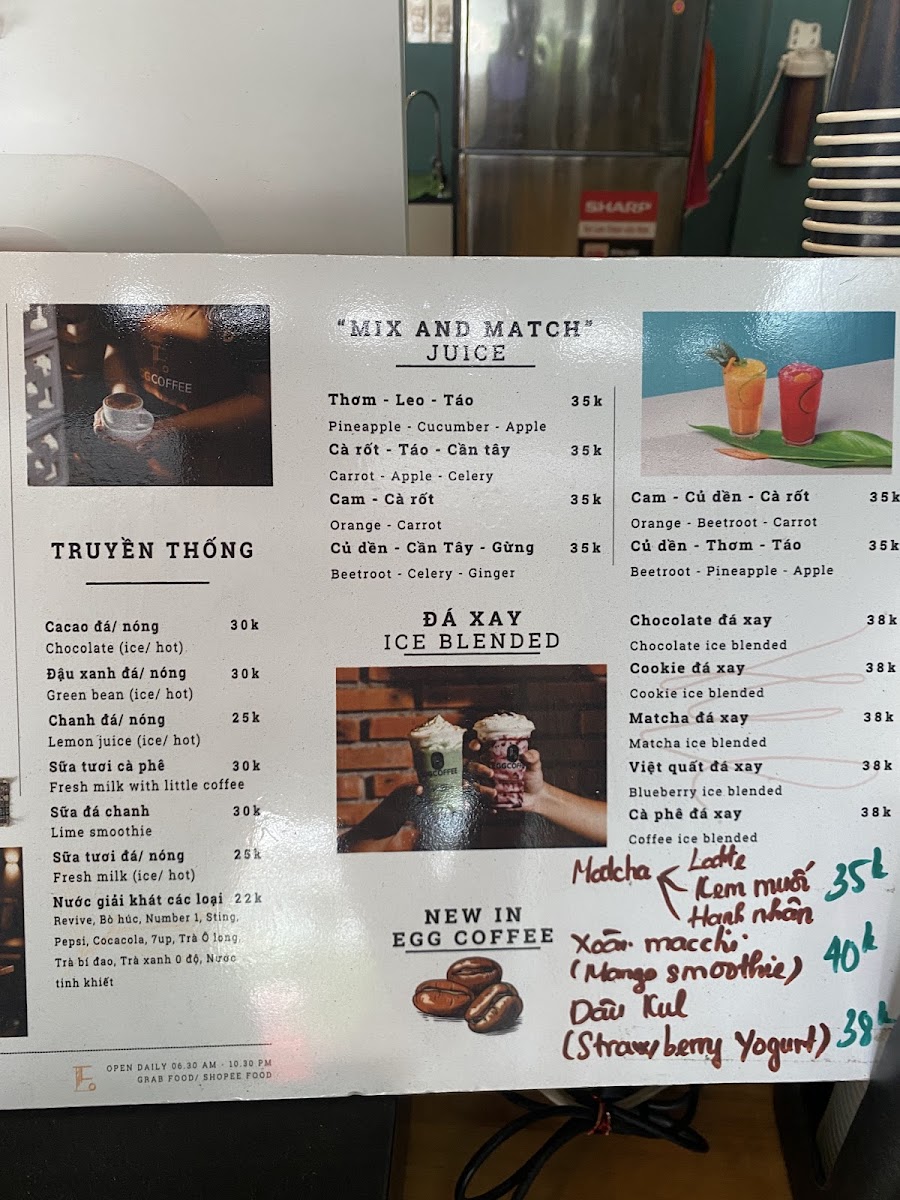 SHARP
GCOFFEE
TRUYỀN THỐNG
Cacao đá/ nóng 30k
Chocolate (ice/ hot)
Đậu xanh đá/ nóng 30k
Green bean (ice/ hot)
Chanh đá/ nóng 25k
Lemon juice (ice/ hot)
Sữa tươi cà phê 30k
Fresh milk with little coffee
Sữa đá chanh 30k
Lime smoothie
Sữa tươi đá/ nóng 25k
Fresh milk (ice/ hot)
Nước giải khát các loại 22k
Revive, Bò húc, Number 1, Sting,
Pepsi, Cocacola, 7up, Trà Ô long,
Trà bí đao, Trà xanh 0 độ, Nước
tinh khiết
OPEN DAILY 06.30 AM - 10.30 PM
GRAB FOOD/ SHOPEE FOOD
"MIX AND MATCH"
JUICE
Thơm - Leo - Táo 35k
Pineapple - Cucumber - Apple
Cà rốt - Táo - Cần tây 35k
Carrot - Apple - Celery
Cam - Cà rốt 35k
Orange - Carrot
Củ dền - Cần Tây - Gừng 35k
Beetroot - Celery - Ginger
Cam - Củ dền - Cà rốt 35k
Orange - Beetroot - Carrot
Củ dền - Thơm - Táo 35k
Beetroot - Pineapple - Apple
ĐÁ XAY
ICE BLENDED
Chocolate đá xay 38k
Chocolate ice blended
Cookie đá xay 38k
Cookie ice blended
Matcha đá xay 38k
Matcha ice blended
Việt quất đá xay 38k
Blueberry ice blended
Cà phê đá xay 38k
Coffee ice blended
NEW IN
EGG COFFEE
Matcha Latte
Kem muối 35k
Hạnh nhân
Xoài macchi
(Mango smoothie) 40k
Dâu Kul
(Strawberry Yogurt) 38k